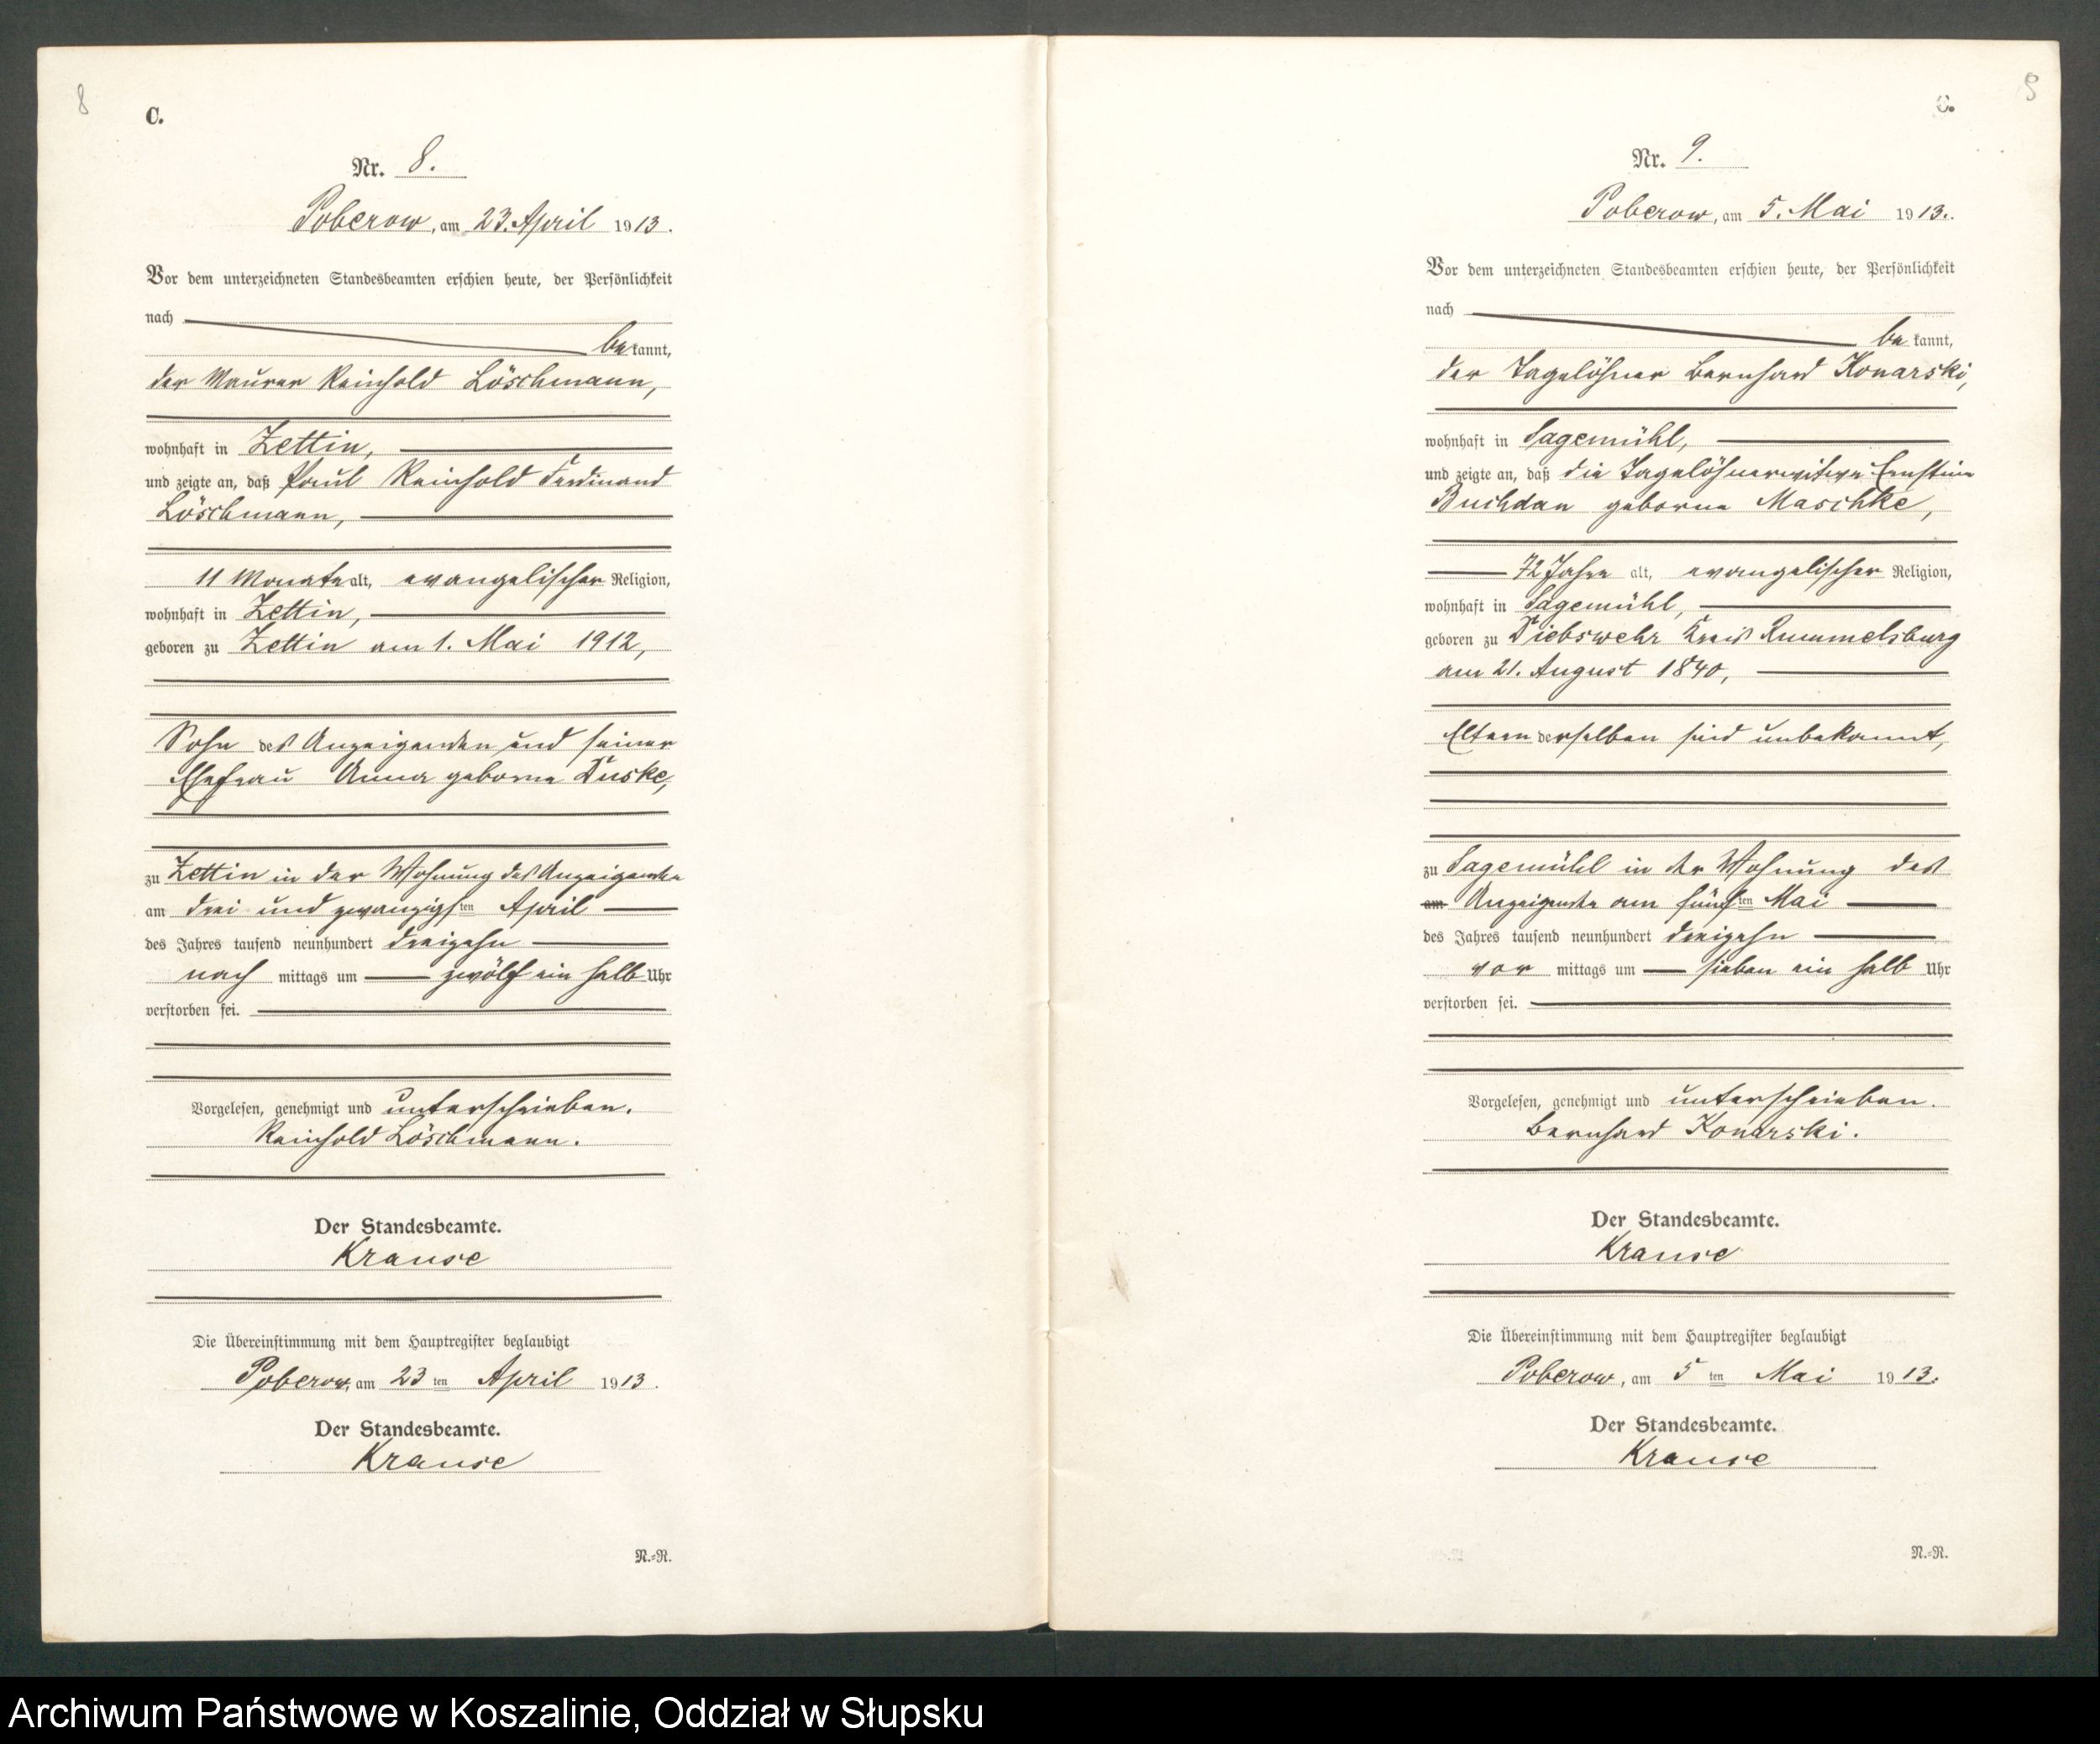 8
C.
Nr. 8.
Poberow, am 23. April 1913.
Vor dem unterzeichneten Standesbeamten erschien heute, der Persönlichkeit
nach
bekannt,
der Maurer Reinhold Löschmann,
wohnhaft in Zettin,
und zeigte an, daß Paul Reinhold Ferdinand
Löschmann,
11 Monate alt, evangelischer Religion,
wohnhaft in Zettin,
geboren zu Zettin am 1. Mai 1912,
Sohn des Anzeigenden und seiner
Ehefrau Anna geborne Duske,
zu Zettin in der Wohnung des Anzeigenden
am drei und zwanzigsten April
des Jahres tausend neunhundert dreizehn
nach mittags um zwölf ein halb Uhr
verstorben sei.
Vorgelesen, genehmigt und unterschrieben.
Reinhold Löschmann.
Der Standesbeamte.
Krause
Die Übereinstimmung mit dem Hauptregister beglaubigt
Poberow, am 23 ten April 1913.
Der Standesbeamte.
Krause
N.-R.
C.
Nr. 9.
Poberow, am 5. Mai 1913.
Vor dem unterzeichneten Standesbeamten erschien heute, der Persönlichkeit
nach
bekannt,
der Tagelöhner Bernhard Konarski,
wohnhaft in Sagemühl,
und zeigte an, daß die Tagelöhnerwitwe Ernstine
Buchdan geborne Maschke,
72 Jahre alt, evangelischer Religion,
wohnhaft in Sagemühl,
geboren zu Diebswehr Kreis Rummelsburg
am 21. August 1840,
Eltern derselben sind unbekannt,
zu Sagemühl in der Wohnung des
am Anzeigenden am fünften Mai
des Jahres tausend neunhundert dreizehn
vor mittags um sieben ein halb Uhr
verstorben sei.
Vorgelesen, genehmigt und unterschrieben.
Bernhard Konarski.
Der Standesbeamte.
Krause
Die Übereinstimmung mit dem Hauptregister beglaubigt
Poberow, am 5 ten Mai 1913.
Der Standesbeamte.
Krause
N.-R.
Archiwum Państwowe w Koszalinie, Oddział w Słupsku